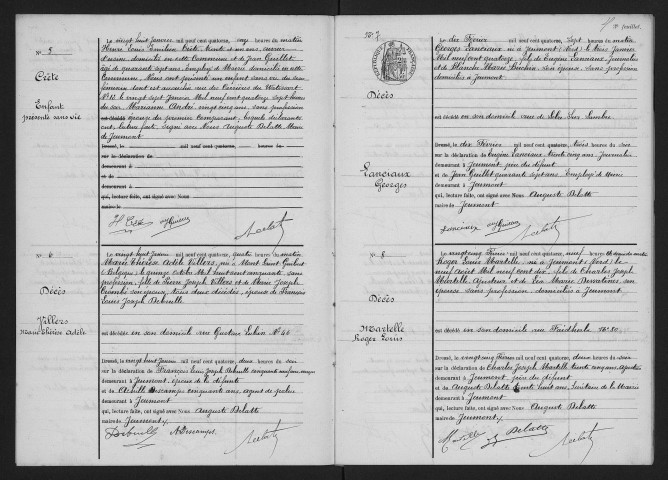 N° 5
Crète
Enfant
présenté sans vie
Le vingt huit Janvier mil neuf cent quatorze, onze heures du matin
Henri Louis Emilien Crète trente et un ans, ouvrier
d'usine, domicilié en cette Commune et Jean Guillet
âgé de quarante sept ans, Employé d'Usine domicilié en cette
Commune, Nous ont présenté un enfant sans vie du sexe
féminin dont est accouchée rue des Carrières du Watissart
N° 13 le vingt sept Janvier Mil neuf cent quatorze sept heures
du soir Marianne André vingt cinq ans, sans profession
épouse du premier comparant, lesquels déclarants
ont, lecture faite, signé avec Nous Auguste Delatte Maire
de Jeumont
Dressé, le mil neuf cent quatorze, heures du
sur la déclaration de
demeurant à
et de
demeurant à
qui, lecture faite, ont signé avec Nous
maire de
H Crète
N° 6
Décès
Villers
Marie Thérèse Adèle
Le vingt huit Janvier mil neuf cent quatorze, quatre heures du matin
Marie Thérèse Adèle Villers, née à Mont Saint Guibert
(Belgique) le quinze Octobre Mil huit cent cinquante, sans
profession, fille de Pierre Joseph Villers et de Marie Joseph
son épouse, tous deux décédés, épouse de François
Louis Joseph Debruille
est décédée en son domicile rue Gustave N° 46
Dressé, le vingt huit Janvier mil neuf cent quatorze, deux heures du soir
sur la déclaration de François Louis Joseph Debruille cinquante ans
demeurant à Jeumont époux de la défunte
et de Achille Descamps cinquante ans, agent de police
demeurant à Jeumont
qui, lecture faite, ont signé avec Nous Auguste Delatte
maire de Jeumont
Debruille A Descamps
2e feuillet.
N° 7
Décès
Lanciaux
Georges
Le dix Février mil neuf cent quatorze, sept heures du matin
Georges Lanciaux né à Jeumont (Nord) le Janvier
Mil neuf cent quatorze, fils de Eugène Lanciaux Journalier
et de Blanche Marie son épouse, sans profession
domiciliés à Jeumont
est décédé en son domicile rue de Sambre
Dressé, le dix Février mil neuf cent quatorze, trois heures du soir
sur la déclaration de Eugène Lanciaux trente cinq ans, Journalier
demeurant à Jeumont, père du défunt
et de Jean Guillet quarante sept ans Employé d'Usine
demeurant à Jeumont
qui, lecture faite, ont signé avec Nous Auguste Delatte
maire de Jeumont
Lanciaux
N° 8
Décès
Martelle
Roger Louis
Le vingt cinq Février mil neuf cent quatorze, neuf heures du matin
Roger Louis Martelle, né à Jeumont (Nord) le
neuf Août Mil neuf cent dix, fils de Charles Joseph
Martelle, Ajusteur et de Léa Marie son
épouse sans profession domiciliés à Jeumont
est décédé en son domicile rue Faidherbe N° 80
Dressé, le vingt cinq Février mil neuf cent quatorze, deux heures du soir
sur la déclaration de Charles Joseph Martelle trente cinq ans, Ajusteur
demeurant à Jeumont père du défunt
et de Auguste Delatte trente huit ans, Secrétaire de la Mairie
demeurant à Jeumont
qui, lecture faite, ont signé avec Nous Auguste Delatte
maire de Jeumont
Martelle Delatte